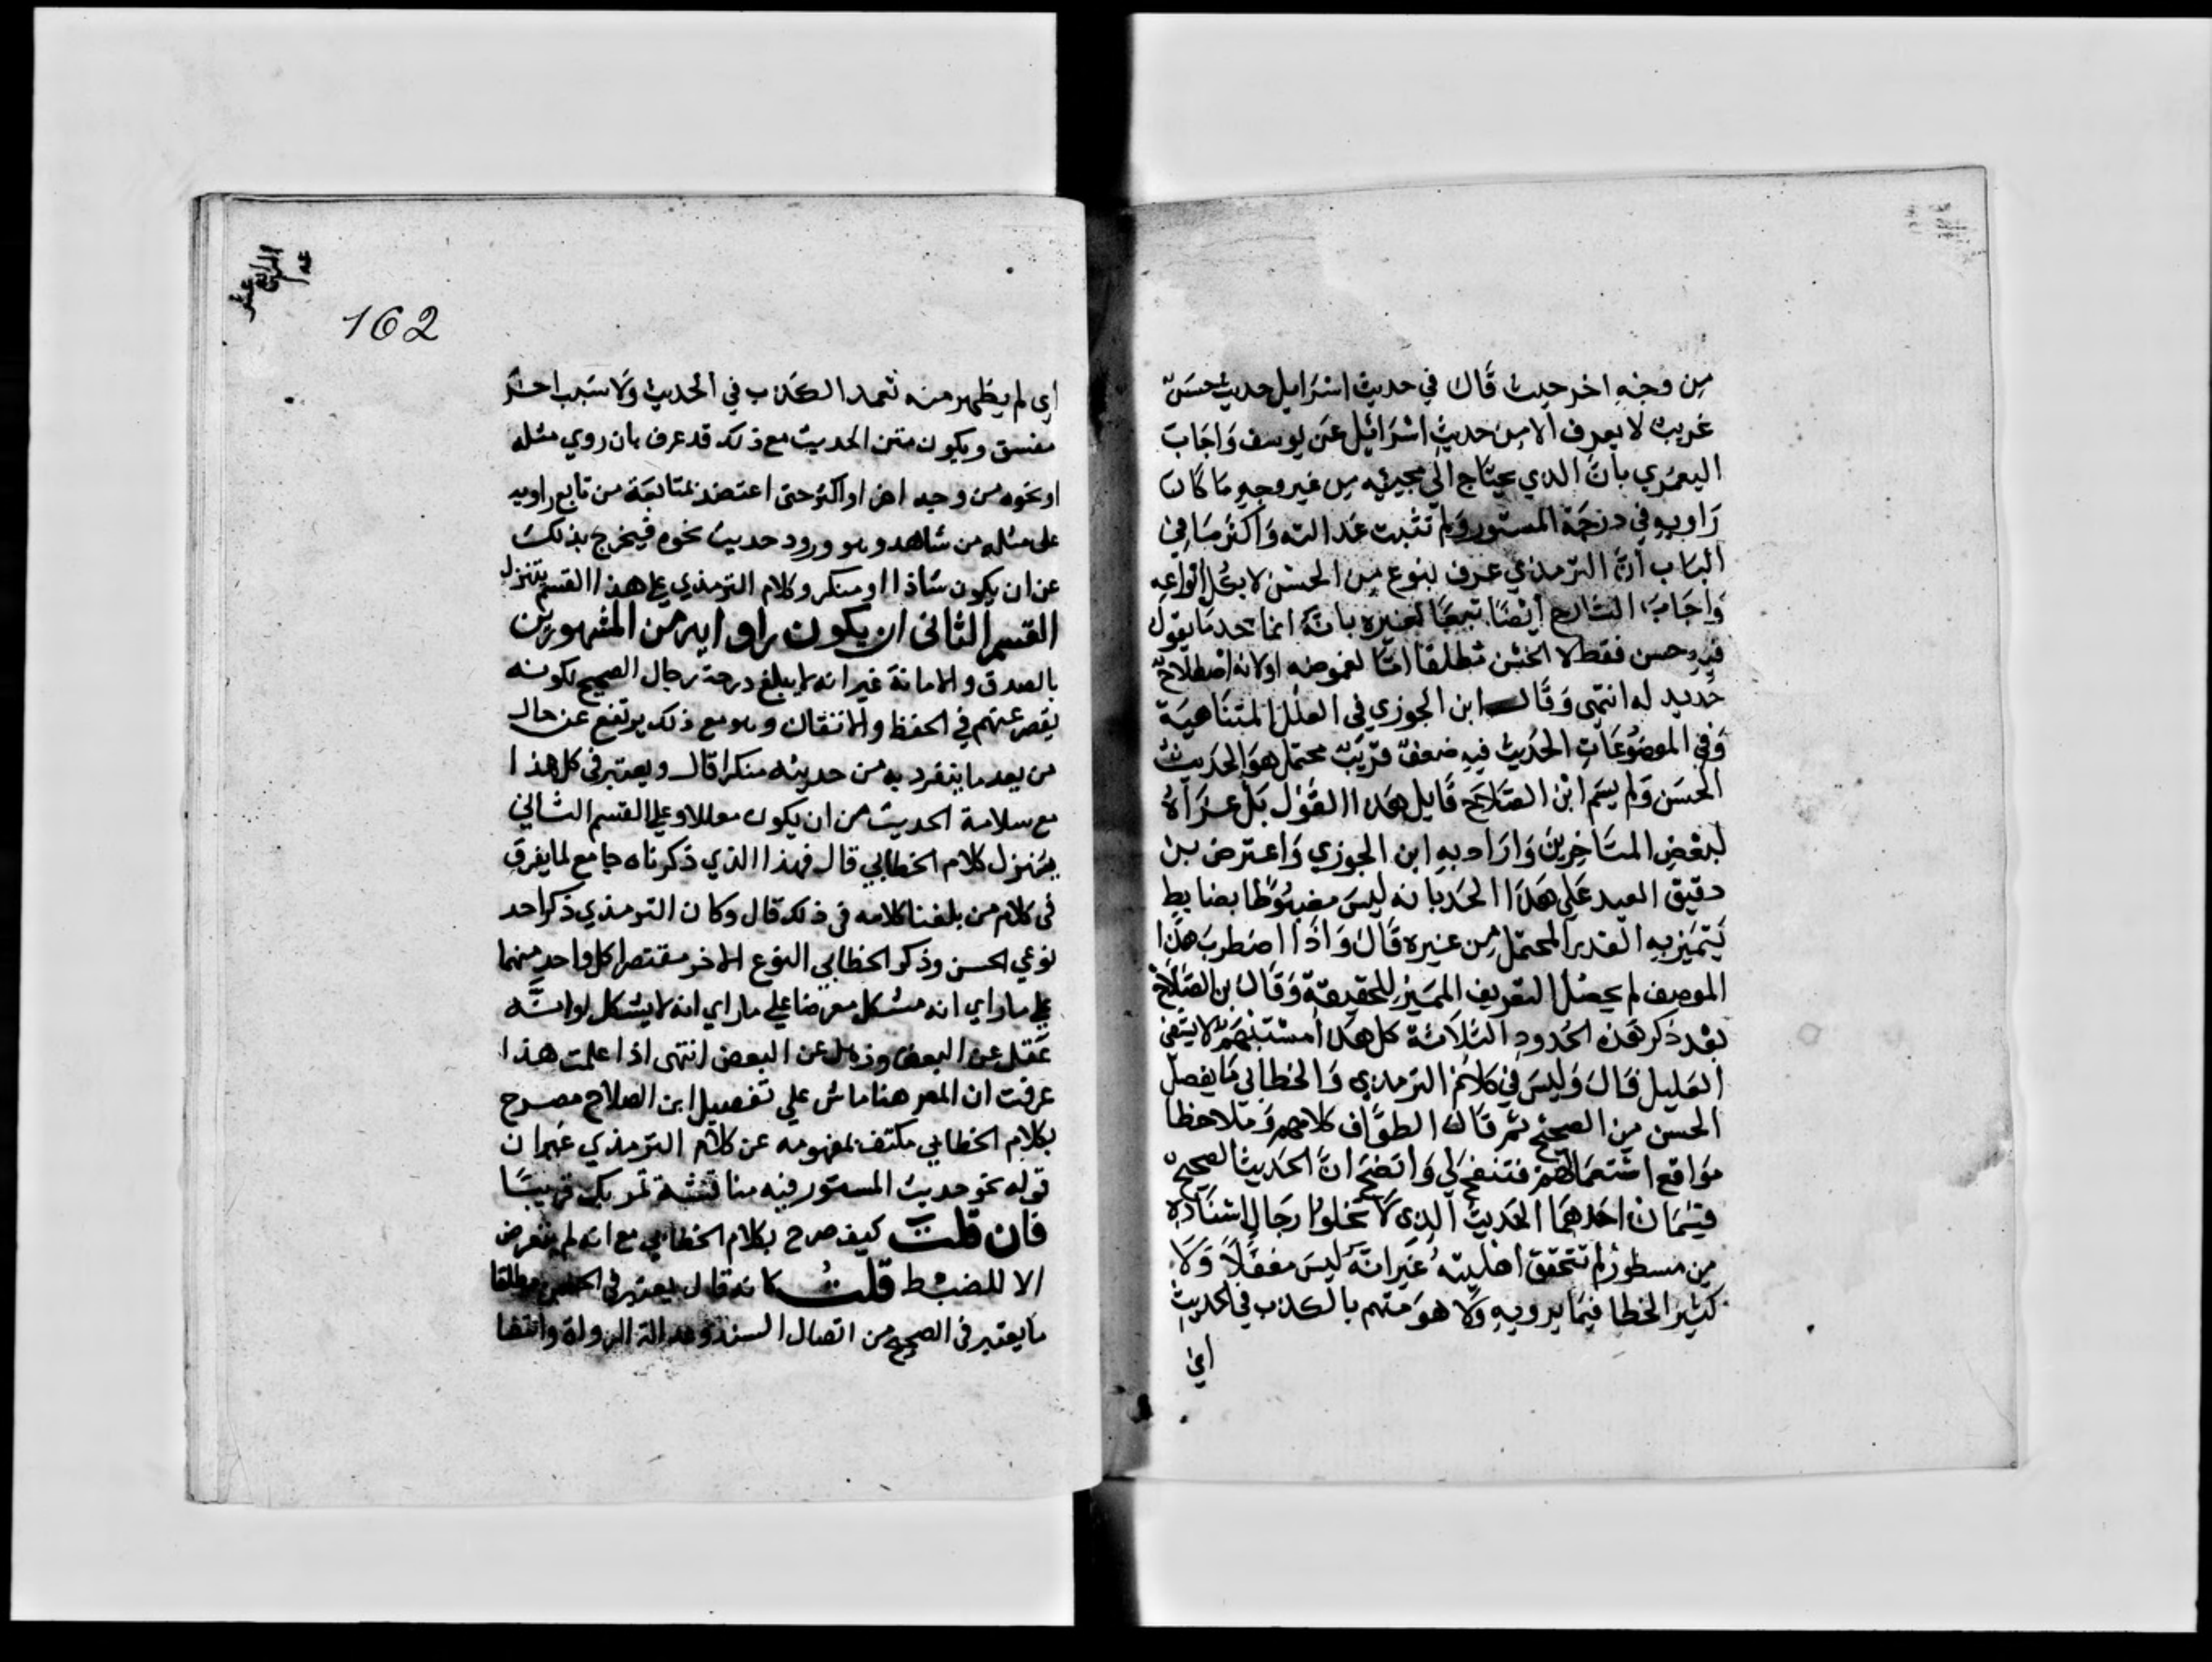 من وجه اخر حيث قال في حديث اسرايل حديث حسن
غريب لا يعرف الا من حديث اسرائيل عن يوسف واجاب
اليعمري بان الذي يحتاج الى مجيئه من غير وجه ما كان
راويه في درجة المستور ولم تثبت عدالته واكثر ما في
الباب ان الترمذي عرف بنوع من الحسن لا بكل انواعه
واجاب الشارح ايضا تبعا لغيره بانه انما يحد ما يقول
فيه حسن فقط لا الحسن مطلقا اما لغموضه او لانه اصطلاح
جديد له انتهى وقال ابن الجوزي في العلل المتناهية
وفي الموضوعات الحديث فيه ضعف قريب محتمل هو الحديث
الحسن ولم يسم ابن الصلاح قايل هذا القول بل عزاه
لبعض المتاخرين واراد به ابن الجوزي واعترض بن
دقيق العيد على هذا الحد بانه ليس مضبوطا بضابط
يتميز به القدر المحتمل من غيره قال واذا اضطرب هذا
الوصف لم يحصل التعريف المميز للحقيقة وقال بن الصلاح
بعد ذكر هذه الحدود الثلاثة كل هذا مستبهم لا يشفي
الغليل قال وليس في كلام الترمذي والخطابي ما يفصل
الحسن من الصحيح ثم قال الطواف كلامهم وملاحظا
مواقع استعمالهم فتنقح لي واتضح ان الحديث الصحيح
قسمان احدهما الحديث الذي لا تخلوا رجال اسناده
من مسطور لم تتحقق اهليته غير انه ليس مغفلا ولا
كثير الخطا فيما يرويه ولا هو متهم بالكذب في الحديث
اي
162
اي لم يظهر منه تعمد الكذب في الحديث ولا سبب اخر
مفسق ويكون متن الحديث مع ذلك قد عرف بان روي مثله
او نحوه من وجه اخر او اكثر حتى اعتضد بمتابعة من تابع راويه
على مثله من شاهد وهو ورود حديث نحوه فيخرج بذلك
عن ان يكون شاذا او منكر وكلام الترمذي على هذا القسم يتنزل
القسم الثاني ان يكون راوايه من المشهورين
بالصدق والامانة غير انه لا يبلغ درجة رجال الصحيح لكونه
يقصر عنهم في الحفظ والاتقان وهو مع ذلك يرتفع عن حال
من يعد ما ينفرد به من حديثه منكرا قال ويعتبر في كل هذا
مع سلامة الحديث من ان يكون معللا وعلى القسم الثاني
يتنزل كلام الخطابي قال فهذا الذي ذكرناه جامع لما يفرق
في كلام من بلغنا كلامه في ذلك قال وكان الترمذي ذكر احد
نوعي الحسن وذكر الخطابي النوع الاخر مقتصرا كل واحد منهما
على ما راي انه مشكل معرضا على ما راي انه لا يشكل او انه
غفل عن البعض وذهل عن البعض انتهى اذا علمت هذا
عرفت ان المصر هنا ماش على تفصيل ابن الصلاح مصرح
بكلام الخطابي مكتف بمفهومه عن كلام الترمذي غير ان
قوله نحو حديث المستور فيه مناقشة تمر بك قريبا
فان قلت كيف صرح بكلام الخطابي مع انه لم يتعرض
الا للضبط قلت كانه قال يعتبر في الحسن مطلقا
ما يعتبر في الصحيح من اتصال السند وعدالة الرواة وانتفا